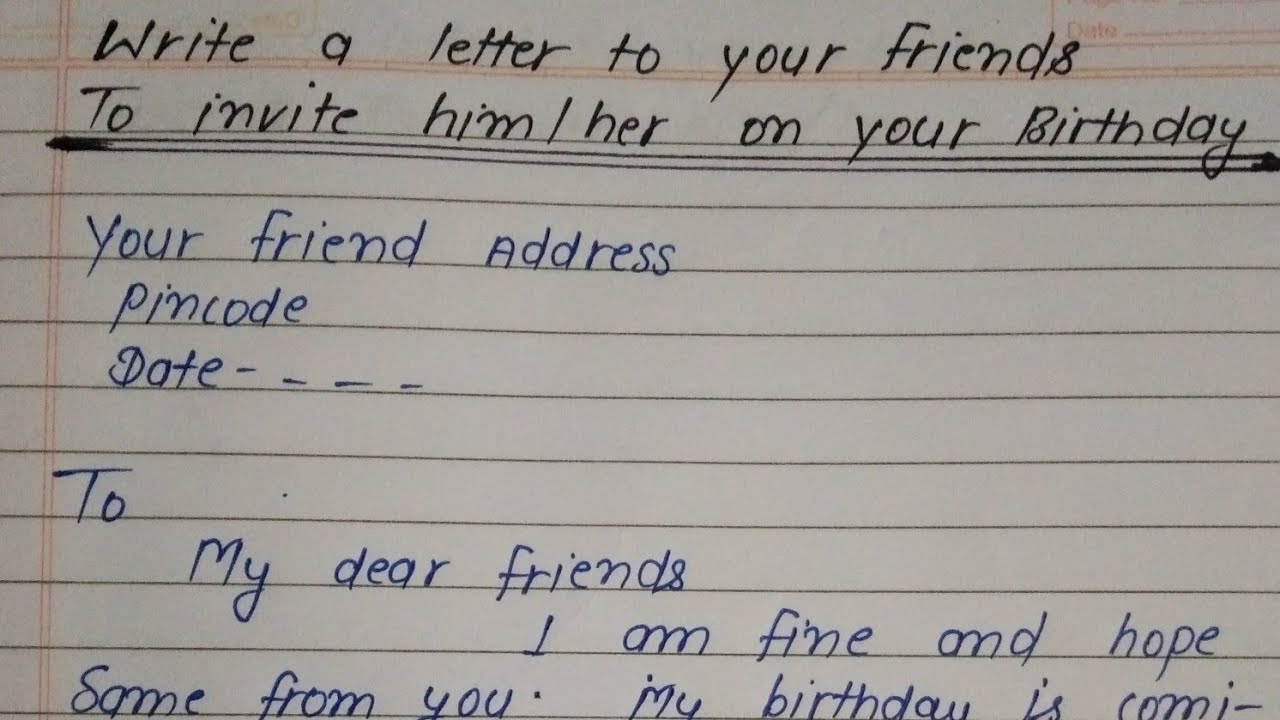 Write a letter to your friends
To invite him/her on your Birthday
Your friend Address
Pincode
Date - - - -
To
My dear friends
I am fine and hope
Same from you. My birthday is comi-
Date